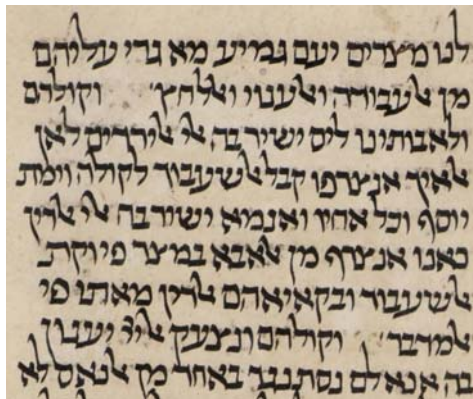 לנו מצרים יעם גמיע מא גרי עליהם
מן ﭏעבודה וﭏענוי וﭏלחץ וקולהם
ולאבותינו ליס ישיר בה ﭏי ﭏירדים לאן
ﭏאיך אנצרפו קבל ﭏשעבוד לקולה וימת
יוסף וכל אחיו ואנמא ישיר בה ﭏי ﭏדין
כאנו אנצרף מן ﭏאבא במצר פי וקת
ﭏשעבוד ובקאיאהם ﭏדין מאתו פי
ﭏמדבר וקולהם ונצעק יענון
בה אנא לם נסתנגד באחד מן ﭏנאס לא